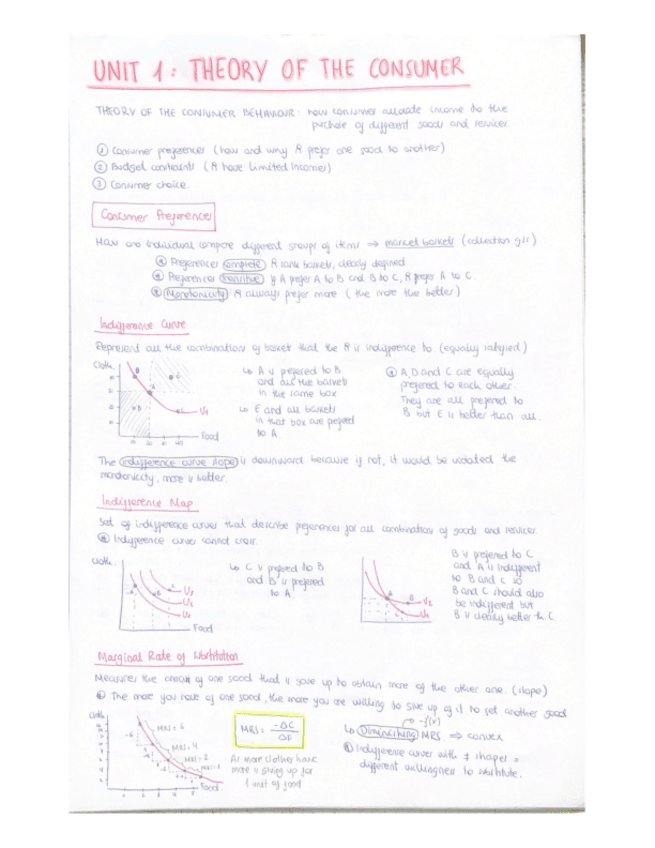 UNIT 1: THEORY OF THE CONSUMER
THEORY OF THE CONSUMER BEHAVIOUR: how consumer allocate income to the
purchase of different goods and services
① Consumer preferences (how and why R prefer one good to another)
② Budget constraints (R have limited incomes)
③ Consumer choice.
Consumer Preferences
How are individual compare different groups of items ⇒ market baskets (collection g/s)
Preferences complete R rank baskets, clearly defined
Preferences transitive if A prefer A to B and B to C, R prefer A to C
Monotonicity R always prefer more (the more the better)
Indifference Curve
Represent all the combination of basket that the R is indifference to (equally satisfied)
Cloth.
A is prefered to B
and all the baskets
in the same box
E and all baskets
in that box are prefered
to A
A, D and C are equally
prefered to each other
They are all prefered to
B but E is better than all.
U1
Food
The indifference curve slope is downward because if not, it would be violated the
monotonicity, more is better.
Indifference Map
Set of indifference curves that describe preferences for all combination of goods and services.
Indifference curves cannot cross.
Cloth.
U3
U2
U1
Food
C is prefered to B
and B is prefered
to A
U2
U1
B is prefered to C
and A is indifferent
to B and C so
B and C should also
be indifferent but
B is clearly better to C
Marginal Rate of Substitution
Measures the amount of one good that is gave up to obtain more of the other one. (slope)
The more you have of one good, the more you are willing to give up of it to get another good
Cloth
MRS = 6
MRS = 4
MRS = 2
MRS = 1
Food
MRS = -ΔC / ΔF
As more clothes have
more is giving up for
1 unit of food
-f(x)
Diminishing MRS ⇒ convex
Indifference curves with ≠ shapes =
different willingness to substitute.